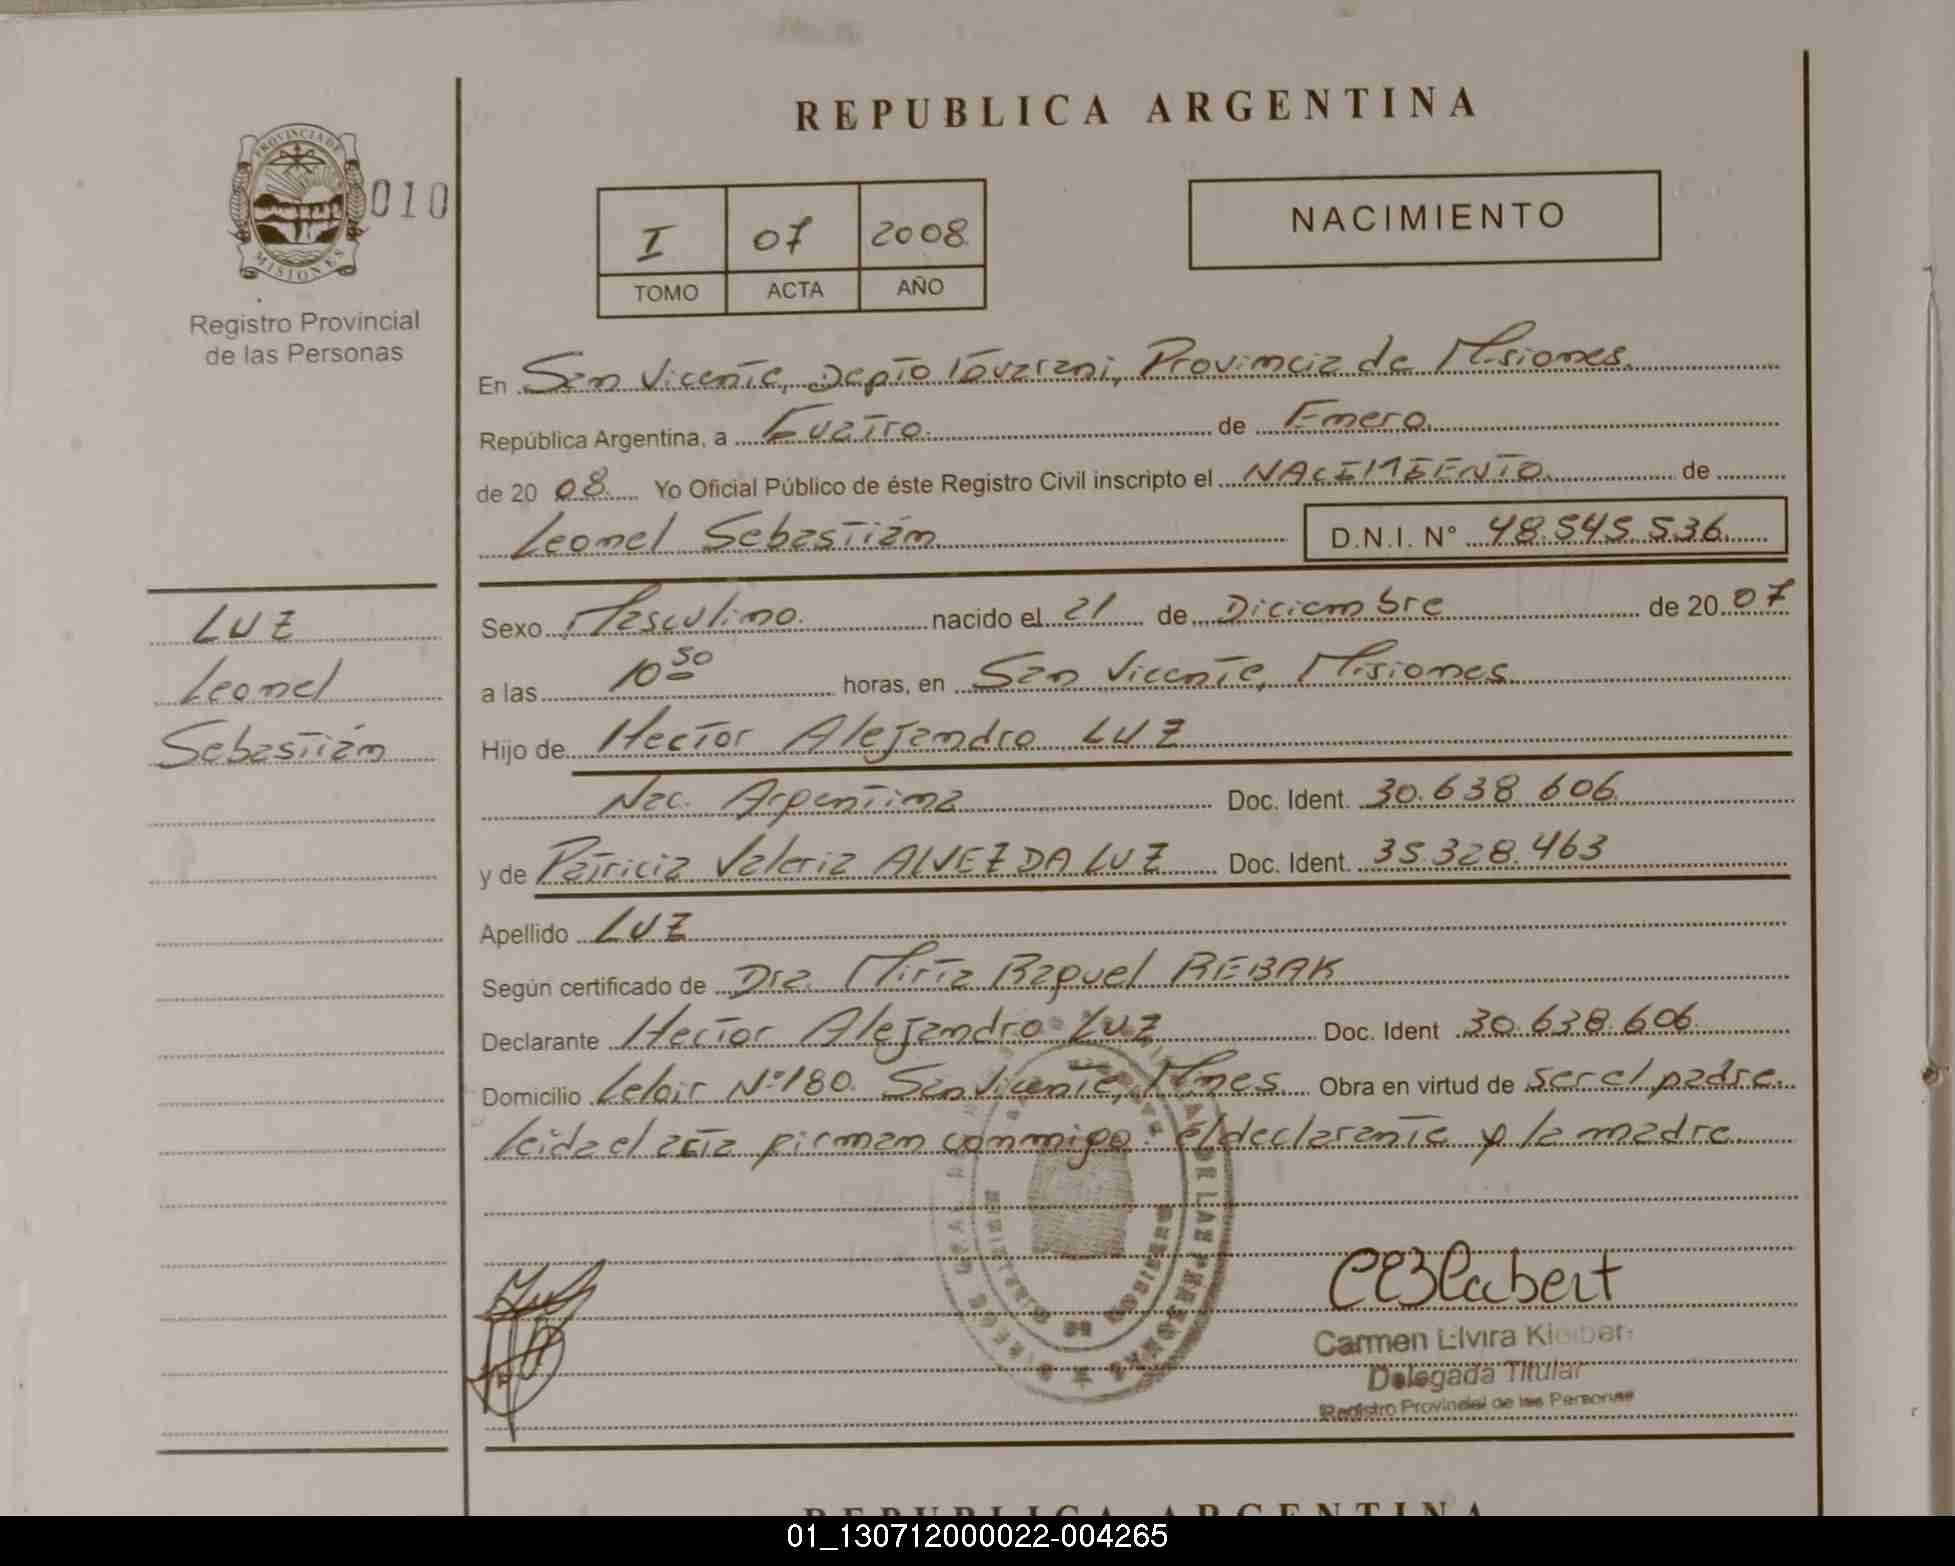 REPUBLICA ARGENTINA
PROVINCIA DE
MISIONES
010
Registro Provincial
de las Personas
I 07 2008
TOMO ACTA AÑO
NACIMIENTO
En San Vicente, Depto Guarani, Provincia de Misiones
República Argentina, a Cuatro de Enero
de 20 08 Yo Oficial Público de éste Registro Civil inscripto el NACIMIENTO de
Leonel Sebastián D.N.I. N° 48.545.536
LUZ
Leonel
Sebastián
Sexo Masculino nacido el 21 de Diciembre de 20 07
a las 10 50 horas, en San Vicente, Misiones
Hijo de Hector Alejandro LUZ
Nac. Argentina Doc. Ident. 30.638.606
y de Patricia Valeria ALVEZ DA LUZ Doc. Ident. 35.328.463
Apellido LUZ
Según certificado de Dra. Mirta Raquel REBAK
Declarante Hector Alejandro LUZ Doc. Ident 30.638.606
Domicilio Leloir N° 180. San Vicente, Mnes. Obra en virtud de ser el padre.
Leida el acta firman conmigo: el declarante y la madre
DE LAS PERSONAS
Carmen Elvira
Delegada Titular
Registro Provincial de las Personas
REPUBLICA ARGENTINA
01_130712000022-004265